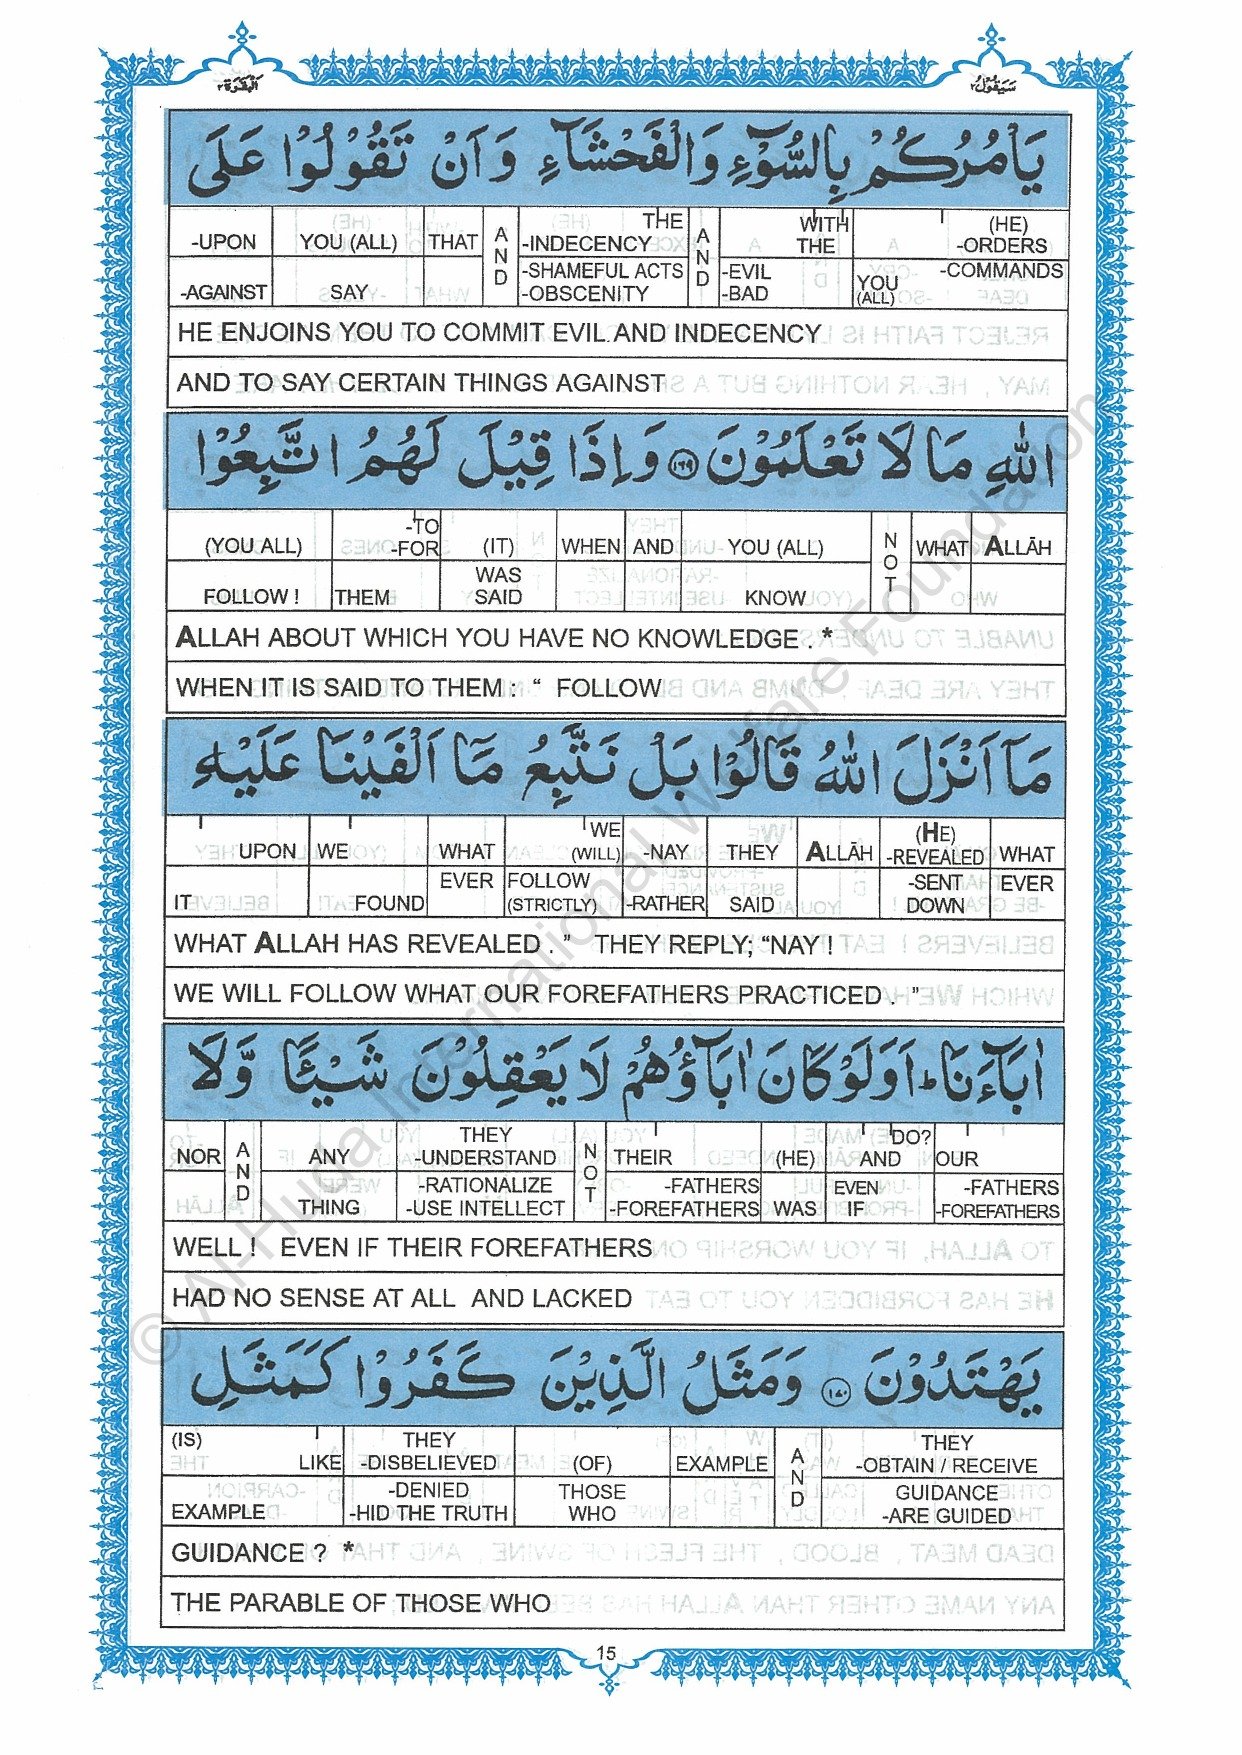 البقرة ٢ سيقول ٢
يَاْمُرُكُمْ بِالسُّوْٓءِ وَالْفَحْشَآءِ وَاَنْ تَقُوْلُوْا عَلَى
-UPON YOU (ALL) THAT AND THE -INDECENCY AND WITH THE (HE) -ORDERS
-AGAINST SAY -SHAMEFUL ACTS -OBSCENITY -EVIL -BAD YOU (ALL) -COMMANDS
HE ENJOINS YOU TO COMMIT EVIL AND INDECENCY
AND TO SAY CERTAIN THINGS AGAINST
اللّٰهِ مَا لَا تَعْلَمُوْنَ ١٦٩ وَاِذَا قِيْلَ لَهُمُ اتَّبِعُوْا
(YOU ALL) -TO -FOR (IT) WHEN AND YOU (ALL) NOT WHAT ALLĀH
FOLLOW ! THEM WAS SAID KNOW
ALLAH ABOUT WHICH YOU HAVE NO KNOWLEDGE . *
WHEN IT IS SAID TO THEM : “ FOLLOW
مَآ اَنْزَلَ اللّٰهُ قَالُوْا بَلْ نَتَّبِعُ مَآ اَلْفَيْنَا عَلَيْهِ
UPON WE WHAT WE (WILL) -NAY THEY ALLĀH (HE) -REVEALED WHAT
IT FOUND EVER FOLLOW (STRICTLY) -RATHER SAID -SENT DOWN EVER
WHAT ALLAH HAS REVEALED . ” THEY REPLY; “NAY !
WE WILL FOLLOW WHAT OUR FOREFATHERS PRACTICED . ”
اٰبَآءَنَا ؕ اَوَلَوْ كَانَ اٰبَآؤُهُمْ لَا يَعْقِلُوْنَ شَيْـًٔا وَّلَا
NOR AND ANY THEY -UNDERSTAND NOT THEIR (HE) DO? AND OUR
THING -RATIONALIZE -USE INTELLECT -FATHERS -FOREFATHERS WAS EVEN IF -FATHERS -FOREFATHERS
WELL ! EVEN IF THEIR FOREFATHERS
HAD NO SENSE AT ALL AND LACKED
يَهْتَدُوْنَ ١٧٠ وَمَثَلُ الَّذِيْنَ كَفَرُوْا كَمَثَلِ
(IS) LIKE THEY -DISBELIEVED (OF) EXAMPLE AND THEY -OBTAIN / RECEIVE
EXAMPLE -DENIED -HID THE TRUTH THOSE WHO GUIDANCE -ARE GUIDED
GUIDANCE ? *
THE PARABLE OF THOSE WHO
15
© Al-Huda International Welfare Foundation